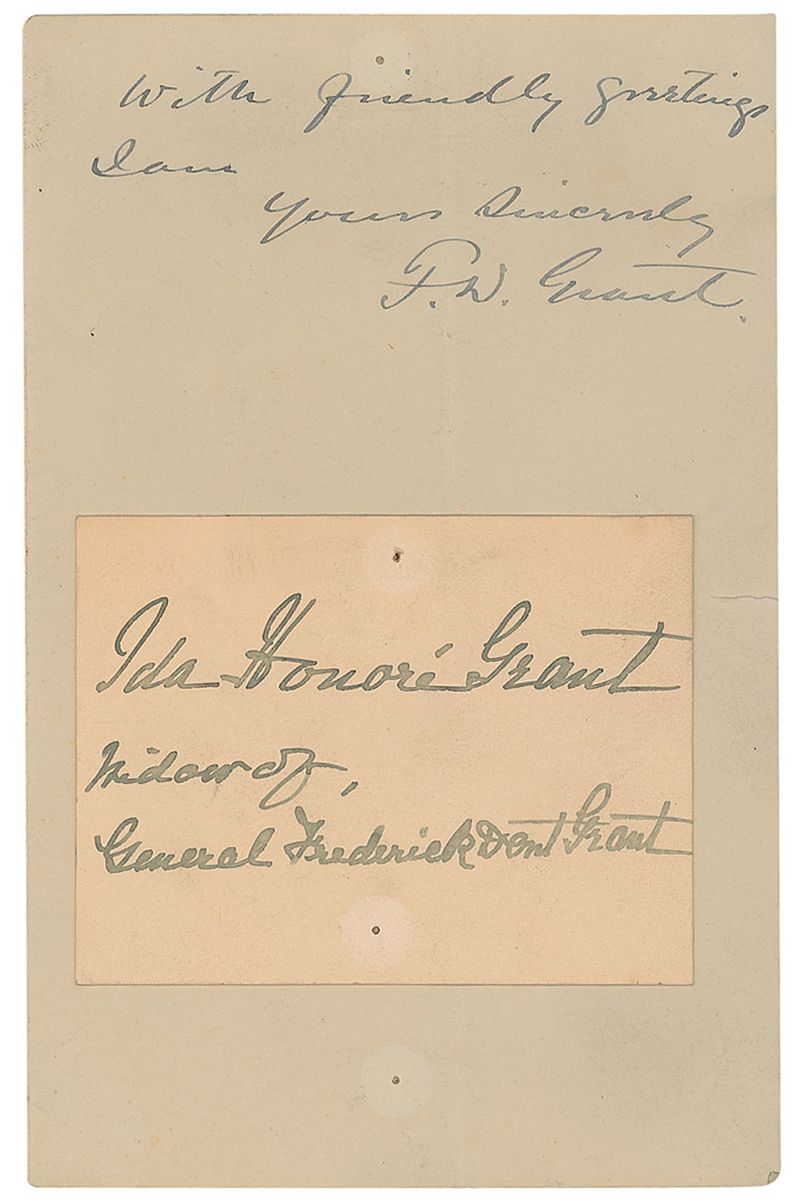 With friendly greetings
I am
Yours Sincerely
F. D. Grant.
Ida Honoré Grant
Widow of,
General Frederick Dent Grant